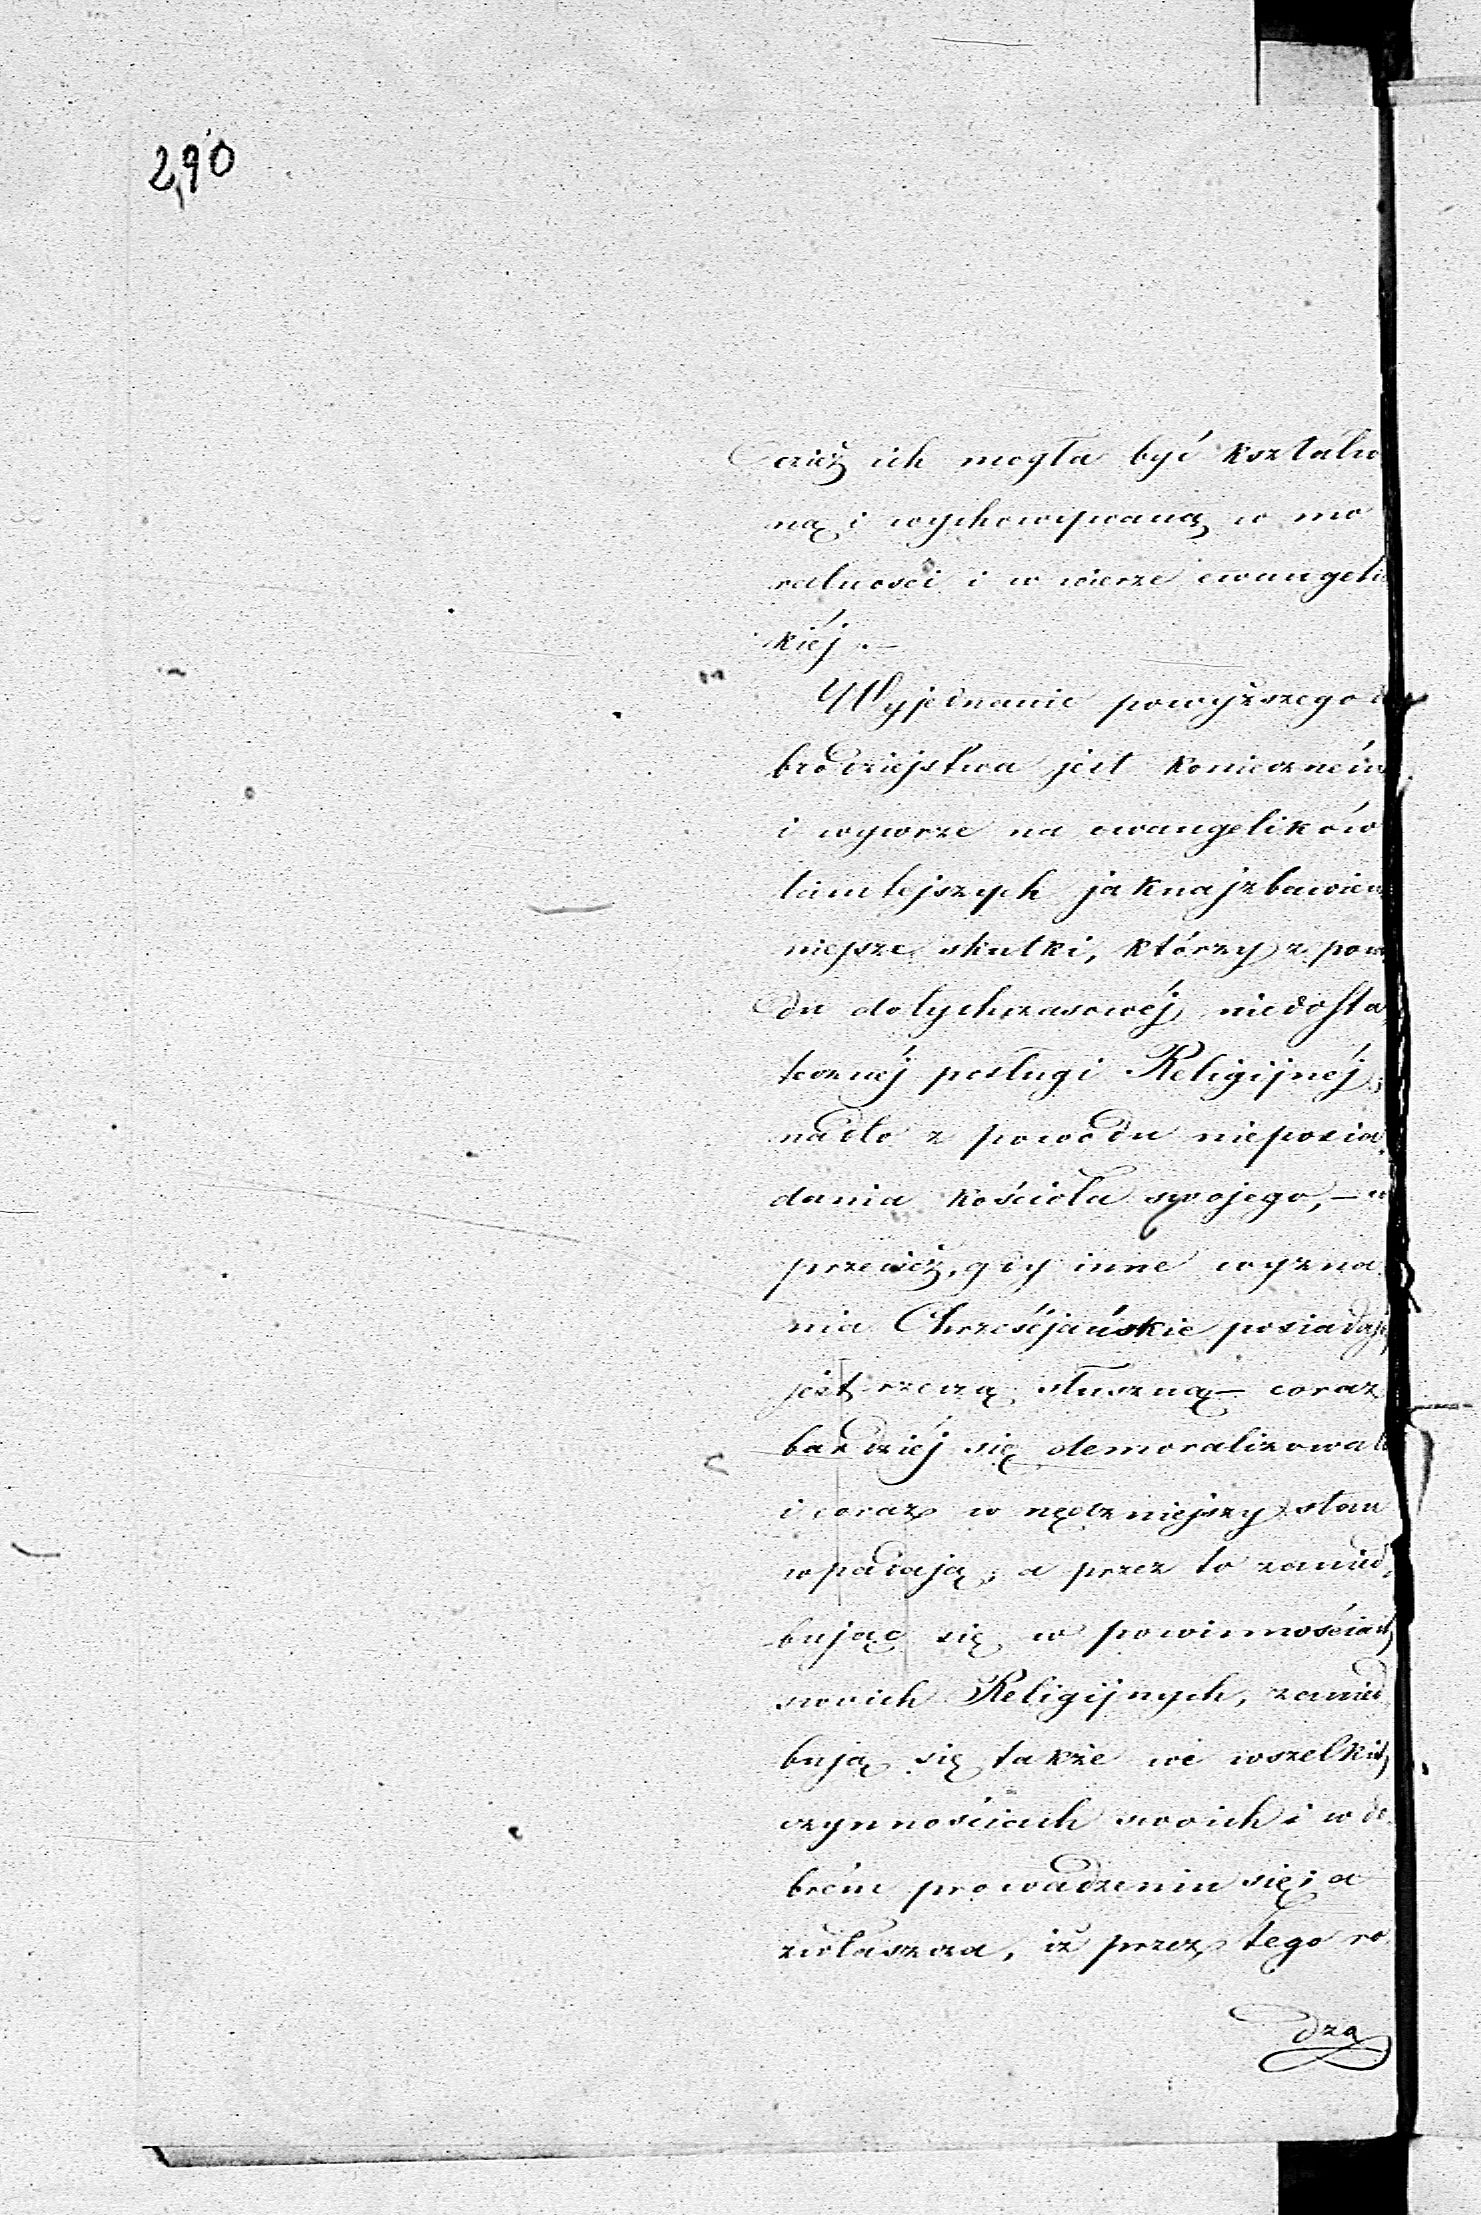 290
dzież ich mogła być kształco
ną i wychowywaną w mo
ralności i w wierze ewangelic
kiéj.–
Wyjednanie powyższego do
brodziejstwa jest koniecznem
i wywrze na ewangelików
tamtejszych jaknajzbawien
niejsze skutki, którzy z powo
du dotychczasowéj niedosta
tecznéj posługi Religijnéj,
nadto z powodu nieposia
dania kościoła swojego, – co
przecież, gdy inne wyzna
nia Chrześcjańskie posiadają
jest rzeczą słuszną – coraz
bardziéj się demoralizowali
i coraz w nędzniejszy stan
wpadają, a przez to zanied
bując się w powinnościach
swoich Religijnych, zanied
bują się także we wszelkich
czynnościach swoich i w do
brém prowadzeniu się; a
zwłaszcza, iż przez tego ro
dza